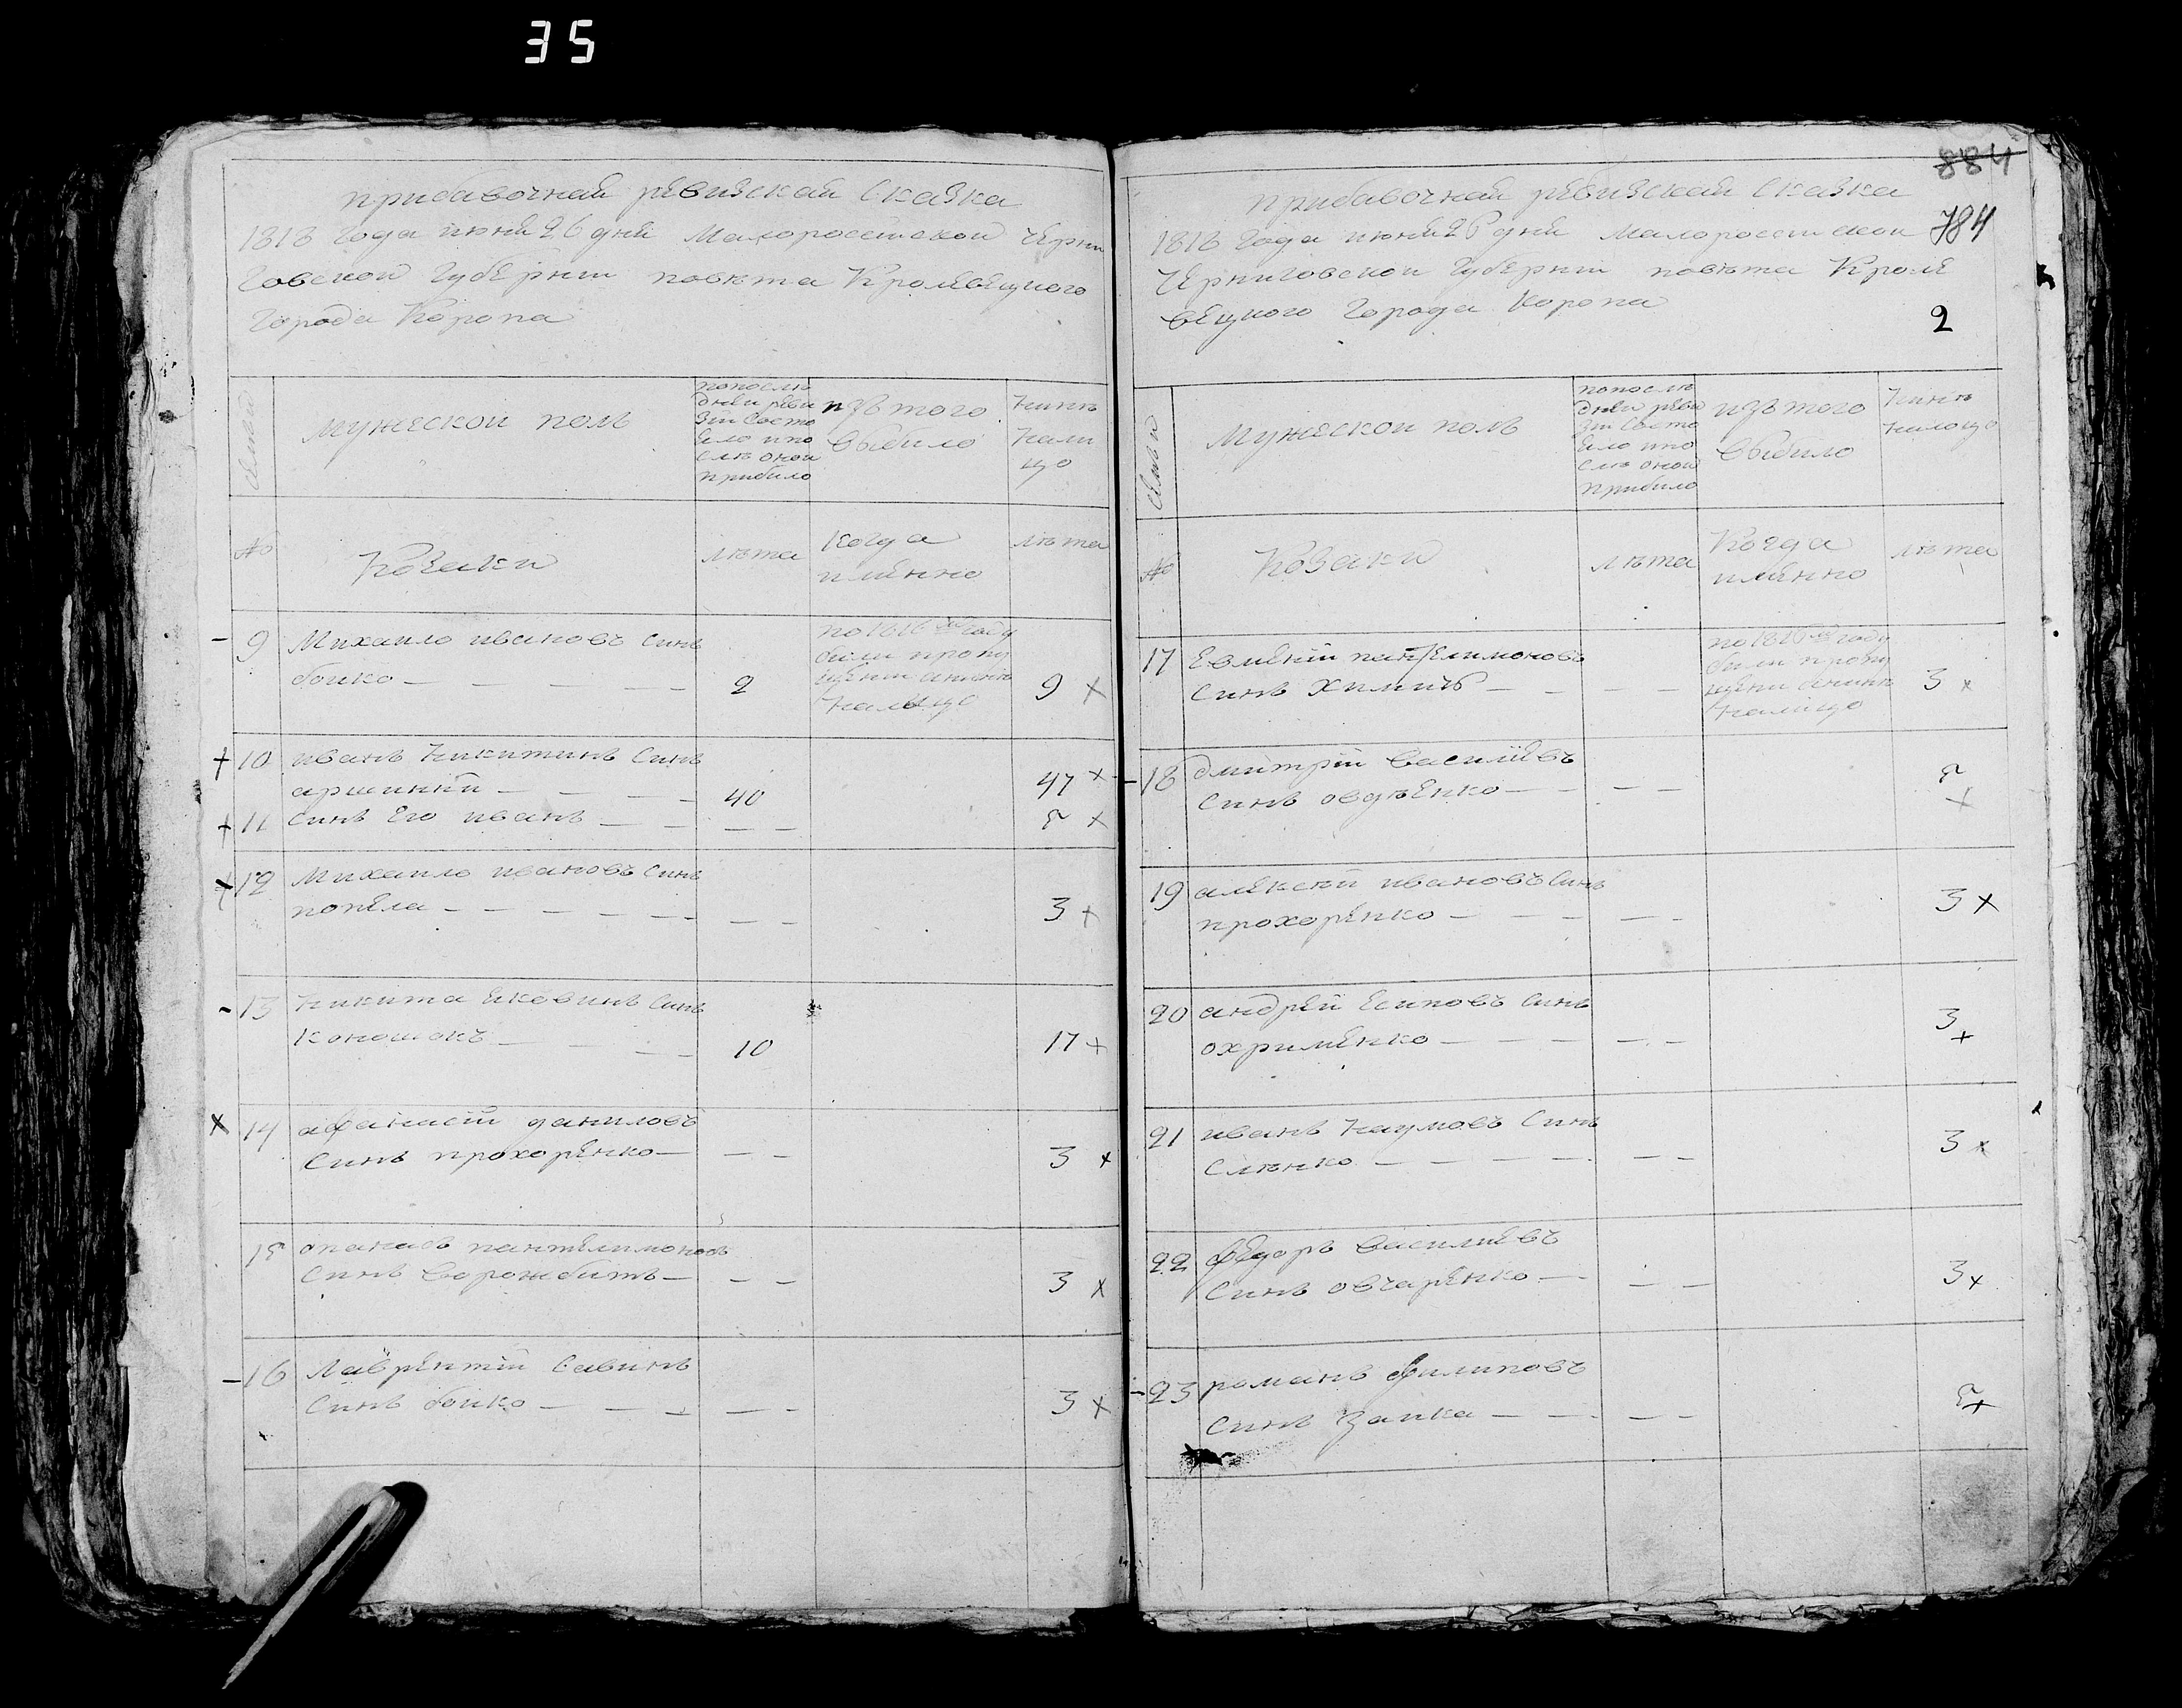 35
прибавочная ревизская сказка
1818 года июня 26 дня Малороссийской Черни
говской губернии повѣта Кролевецкого
города Коропа
семьи
мужеской полъ
попослѣ
дней реви
зіи состо
яло и по
слѣ оной
прибило
изъ того
выбило
нинѣ
нали
цо
№
Козаки
лѣта
когда
именно
лѣта
9 Михайло ивановъ синъ
бойко — — — — — 2 9 ×
по 1816й году
били пропу
щени а нинѣ
налицо
10 иванъ никитинъ синъ
аршикій — — — — 40 47 ×
11 синъ его иванъ — — — — 5 ×
12 Михайло ивановъ синъ
попела — — — — — — — — 3 ×
13 никита яковинъ синъ
коношокъ — — — — 10 17 ×
14 афанасій даниловъ
синъ прохоренко — — — 3 ×
15 опанасъ пантелимоновъ
синъ ворожбитъ — — — 3 ×
16 Лаврентій савинъ
синъ бойко — — — — — 3 ×
884
784
2
прибавочная ревизская сказка
1818 года июня 26 дня малороссійской
Черниговской губерніи повѣта Кроле
вецкого города Коропа
семьи
Мужеской полъ
попослѣ
дней реви
зіи состо
яло и по
слѣ оной
прибило
изъ того
выбило
нинѣ
налицо
№
Козаки
лѣта
Когда
именно
лѣта
17 Евменій пантелимоновъ
синъ химичъ — — — — 3 ×
по 1816й году
били пропу
щени а нинѣ
налицо
18 дмитрій василіевъ
синъ овдѣенко — — — — 5
×
19 алексѣй ивановъ синъ
прохоренко — — — — — 3 ×
20 андрей Есиповъ синъ
охрименко — — — — — — 3
×
21 иванъ наумовъ синъ
слѣнко — — — — — — — 3 ×
22 федоръ василиевъ
синъ овчаренко — — — 3 ×
23 романъ филиповъ
синъ заика — — — — 5 ×